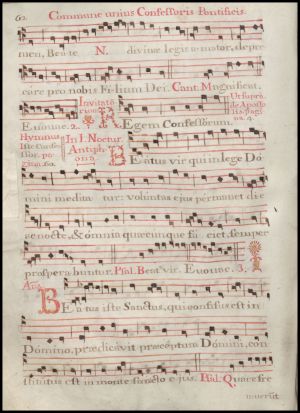 62. Commune unius Confessoris Pontificis.
men, Beate N. divinæ legis amator, depre
care pro nobis Filium Dei. Cant. Magnificat.
Invitato
rium.
Ut supra
de Aposto
lis pagi
na. 4.
Evouae. 2. REgem Confessorum.
Hymnus
Iste Confes
sor. pa
gina. 60.
In I. Noctur.
Antiph
ona.
BEatus vir qui in lege Do
mini medita tur: voluntas ejus permanet die
ac nocte, & omnia quæcunque fa ciet, semper
prospera buntur. Psal. Beat' vir. Evouae. 3.
Aña.
BEa tus iste Sanctus, qui confisus est in
Domino, prædicavit præceptum Domini, con
stitutus est in monte sancto e jus. Psal. Quare fre
muerūt